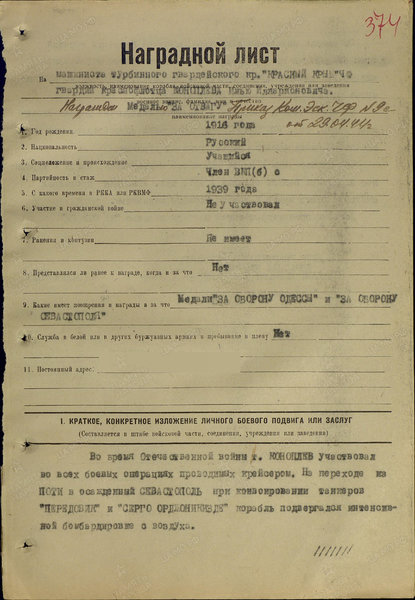 374
Наградной лист
На машиниста турбинного гвардейского кр. "КРАСНЫЙ КРЫМ" ЧФ
гвардии краснофлотца КОНОПЛЕВА
Награжден медалью "ЗА ОТВАГУ" Приказ Ком. Эск. ЧФ № 9с
наименование награды
от 29.04.44г
1. Год рождения 1918 года
2. Национальность Русский
3. Соцположение и происхождение Учащийся
4. Партийность и стаж Член ВКП(б) с
5. С какого времени в РККА или РКВМФ 1939 года
6. Участие в гражданской войне Не участвовал
7. Ранения и контузии Не имеет
8. Представлялся ли ранее к награде, когда и за что Нет
9. Какие имеет поощрения и награды и за что Медали "ЗА ОБОРОНУ ОДЕССЫ" и "ЗА ОБОРОНУ
СЕВАСТОПОЛЯ"
10. Служба в белой или в других буржуазных армиях и пребывание в плену Нет
11. Постоянный адрес:
I. КРАТКОЕ, КОНКРЕТНОЕ ИЗЛОЖЕНИЕ ЛИЧНОГО БОЕВОГО ПОДВИГА ИЛИ ЗАСЛУГ
(Составляется в штабе войсковой части, соединения, учреждения или заведения)
Во время Отечественной войны т. КОНОПЛЕВ участвовал
во всех боевых операциях проводимых крейсером. На переходе из
ПОТИ в осажденный СЕВАСТОПОЛЬ при конвоировании танкеров
"ПЕРЕДОВИК" и "СЕРГО ОРДЖОНИКИДЗЕ" корабль подвергался интенсив-
ной бомбардировке с воздуха.